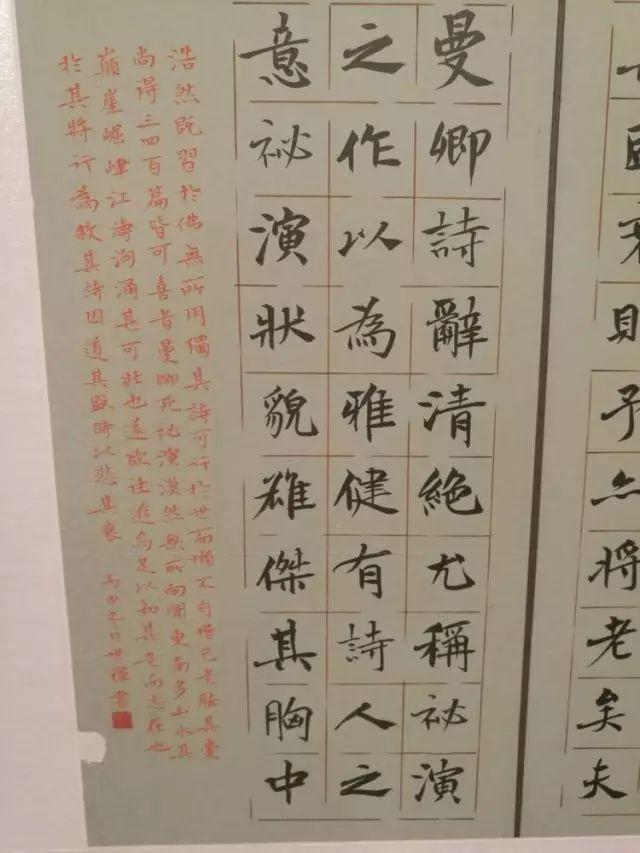 予亦將老矣夫
曼卿詩辭清絕尤稱祕演
之作以為雅健有詩人之
意祕演狀貌雄傑其胸中
浩然既習於佛無所用獨其詩可行於世而懶不自惜已老胠其橐
尚得三四百篇皆可喜者曼卿死祕演漠然無所向聞東南多山水其
巔崖崛峍江濤洶涌甚可壯也遂欲往遊焉足以知其老而志在也
於其將行為敘其詩因道其盛時以悲其衰 丙申冬日世輝書